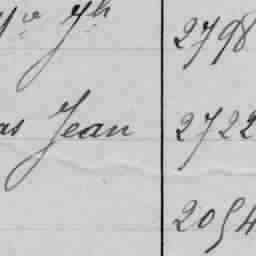 Jh 2798
as Jean 2722
2054